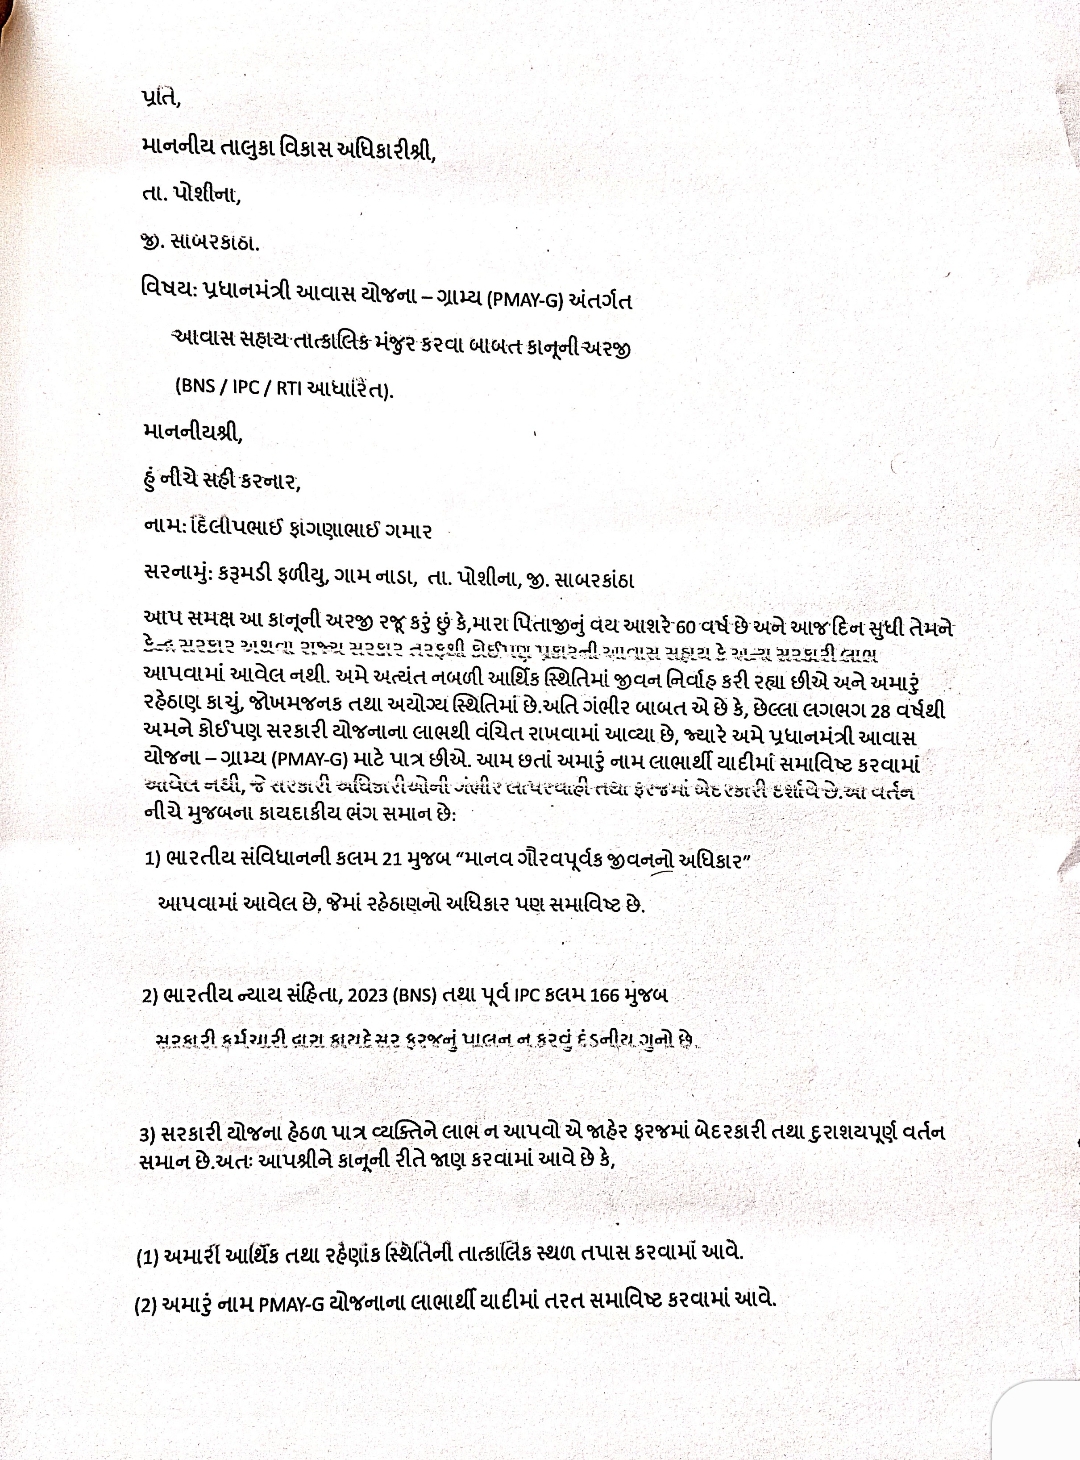 પ્રતિ,
માનનીય તાલુકા વિકાસ અધિકારીશ્રી,
તા. પોશીના,
જી. સાબરકાંઠા.
વિષય: પ્રધાનમંત્રી આવાસ યોજના – ગ્રામ્ય (PMAY-G) અંતર્ગત
આવાસ સહાય તાત્કાલિક મંજુર કરવા બાબત કાનૂની અરજી
(BNS / IPC / RTI આધારિત).
માનનીયશ્રી,
હું નીચે સહી કરનાર,
નામ: દિલીપભાઈ ફાંગણાભાઈ ગમાર
સરનામું: કરૂમડી ફળીયુ, ગામ નાડા, તા. પોશીના, જી. સાબરકાંઠા
આપ સમક્ષ આ કાનૂની અરજી રજૂ કરું છું કે,મારા પિતાજીનું વય આશરે 60 વર્ષ છે અને આજ દિન સુધી તેમને
કેન્દ્ર સરકાર અથવા રાજ્ય સરકાર તરફથી કોઈપણ પ્રકારની આવાસ સહાય કે અન્ય સરકારી લાભ
આપવામાં આવેલ નથી. અમે અત્યંત નબળી આર્થિક સ્થિતિમાં જીવન નિર્વાહ કરી રહ્યા છીએ અને અમારું
રહેઠાણ કાચું, જોખમજનક તથા અયોગ્ય સ્થિતિમાં છે.અતિ ગંભીર બાબત એ છે કે, છેલ્લા લગભગ 28 વર્ષથી
અમને કોઈપણ સરકારી યોજનાના લાભથી વંચિત રાખવામાં આવ્યા છે, જ્યારે અમે પ્રધાનમંત્રી આવાસ
યોજના – ગ્રામ્ય (PMAY-G) માટે પાત્ર છીએ. આમ છતાં અમારું નામ લાભાર્થી યાદીમાં સમાવિષ્ટ કરવામાં
આવેલ નથી, જે સરકારી અધિકારીઓની ગંભીર લાપરવાહી તથા ફરજમાં બેદરકારી દર્શાવે છે.આ વર્તન
નીચે મુજબના કાયદાકીય ભંગ સમાન છે:
1) ભારતીય સંવિધાનની કલમ 21 મુજબ “માનવ ગૌરવપૂર્વક જીવનનો અધિકાર”
આપવામાં આવેલ છે, જેમાં રહેઠાણનો અધિકાર પણ સમાવિષ્ટ છે.
2) ભારતીય ન્યાય સંહિતા, 2023 (BNS) તથા પૂર્વ IPC કલમ 166 મુજબ
સરકારી કર્મચારી દ્વારા કાયદેસર ફરજનું પાલન ન કરવું દંડનીય ગુનો છે.
3) સરકારી યોજના હેઠળ પાત્ર વ્યક્તિને લાભ ન આપવો એ જાહેર ફરજમાં બેદરકારી તથા દુરાશયપૂર્ણ વર્તન
સમાન છે.અતઃ આપશ્રીને કાનૂની રીતે જાણ કરવામાં આવે છે કે,
(1) અમારી આર્થિક તથા રહેણાંક સ્થિતિની તાત્કાલિક સ્થળ તપાસ કરવામાં આવે.
(2) અમારું નામ PMAY-G યોજનાના લાભાર્થી યાદીમાં તરત સમાવિષ્ટ કરવામાં આવે.